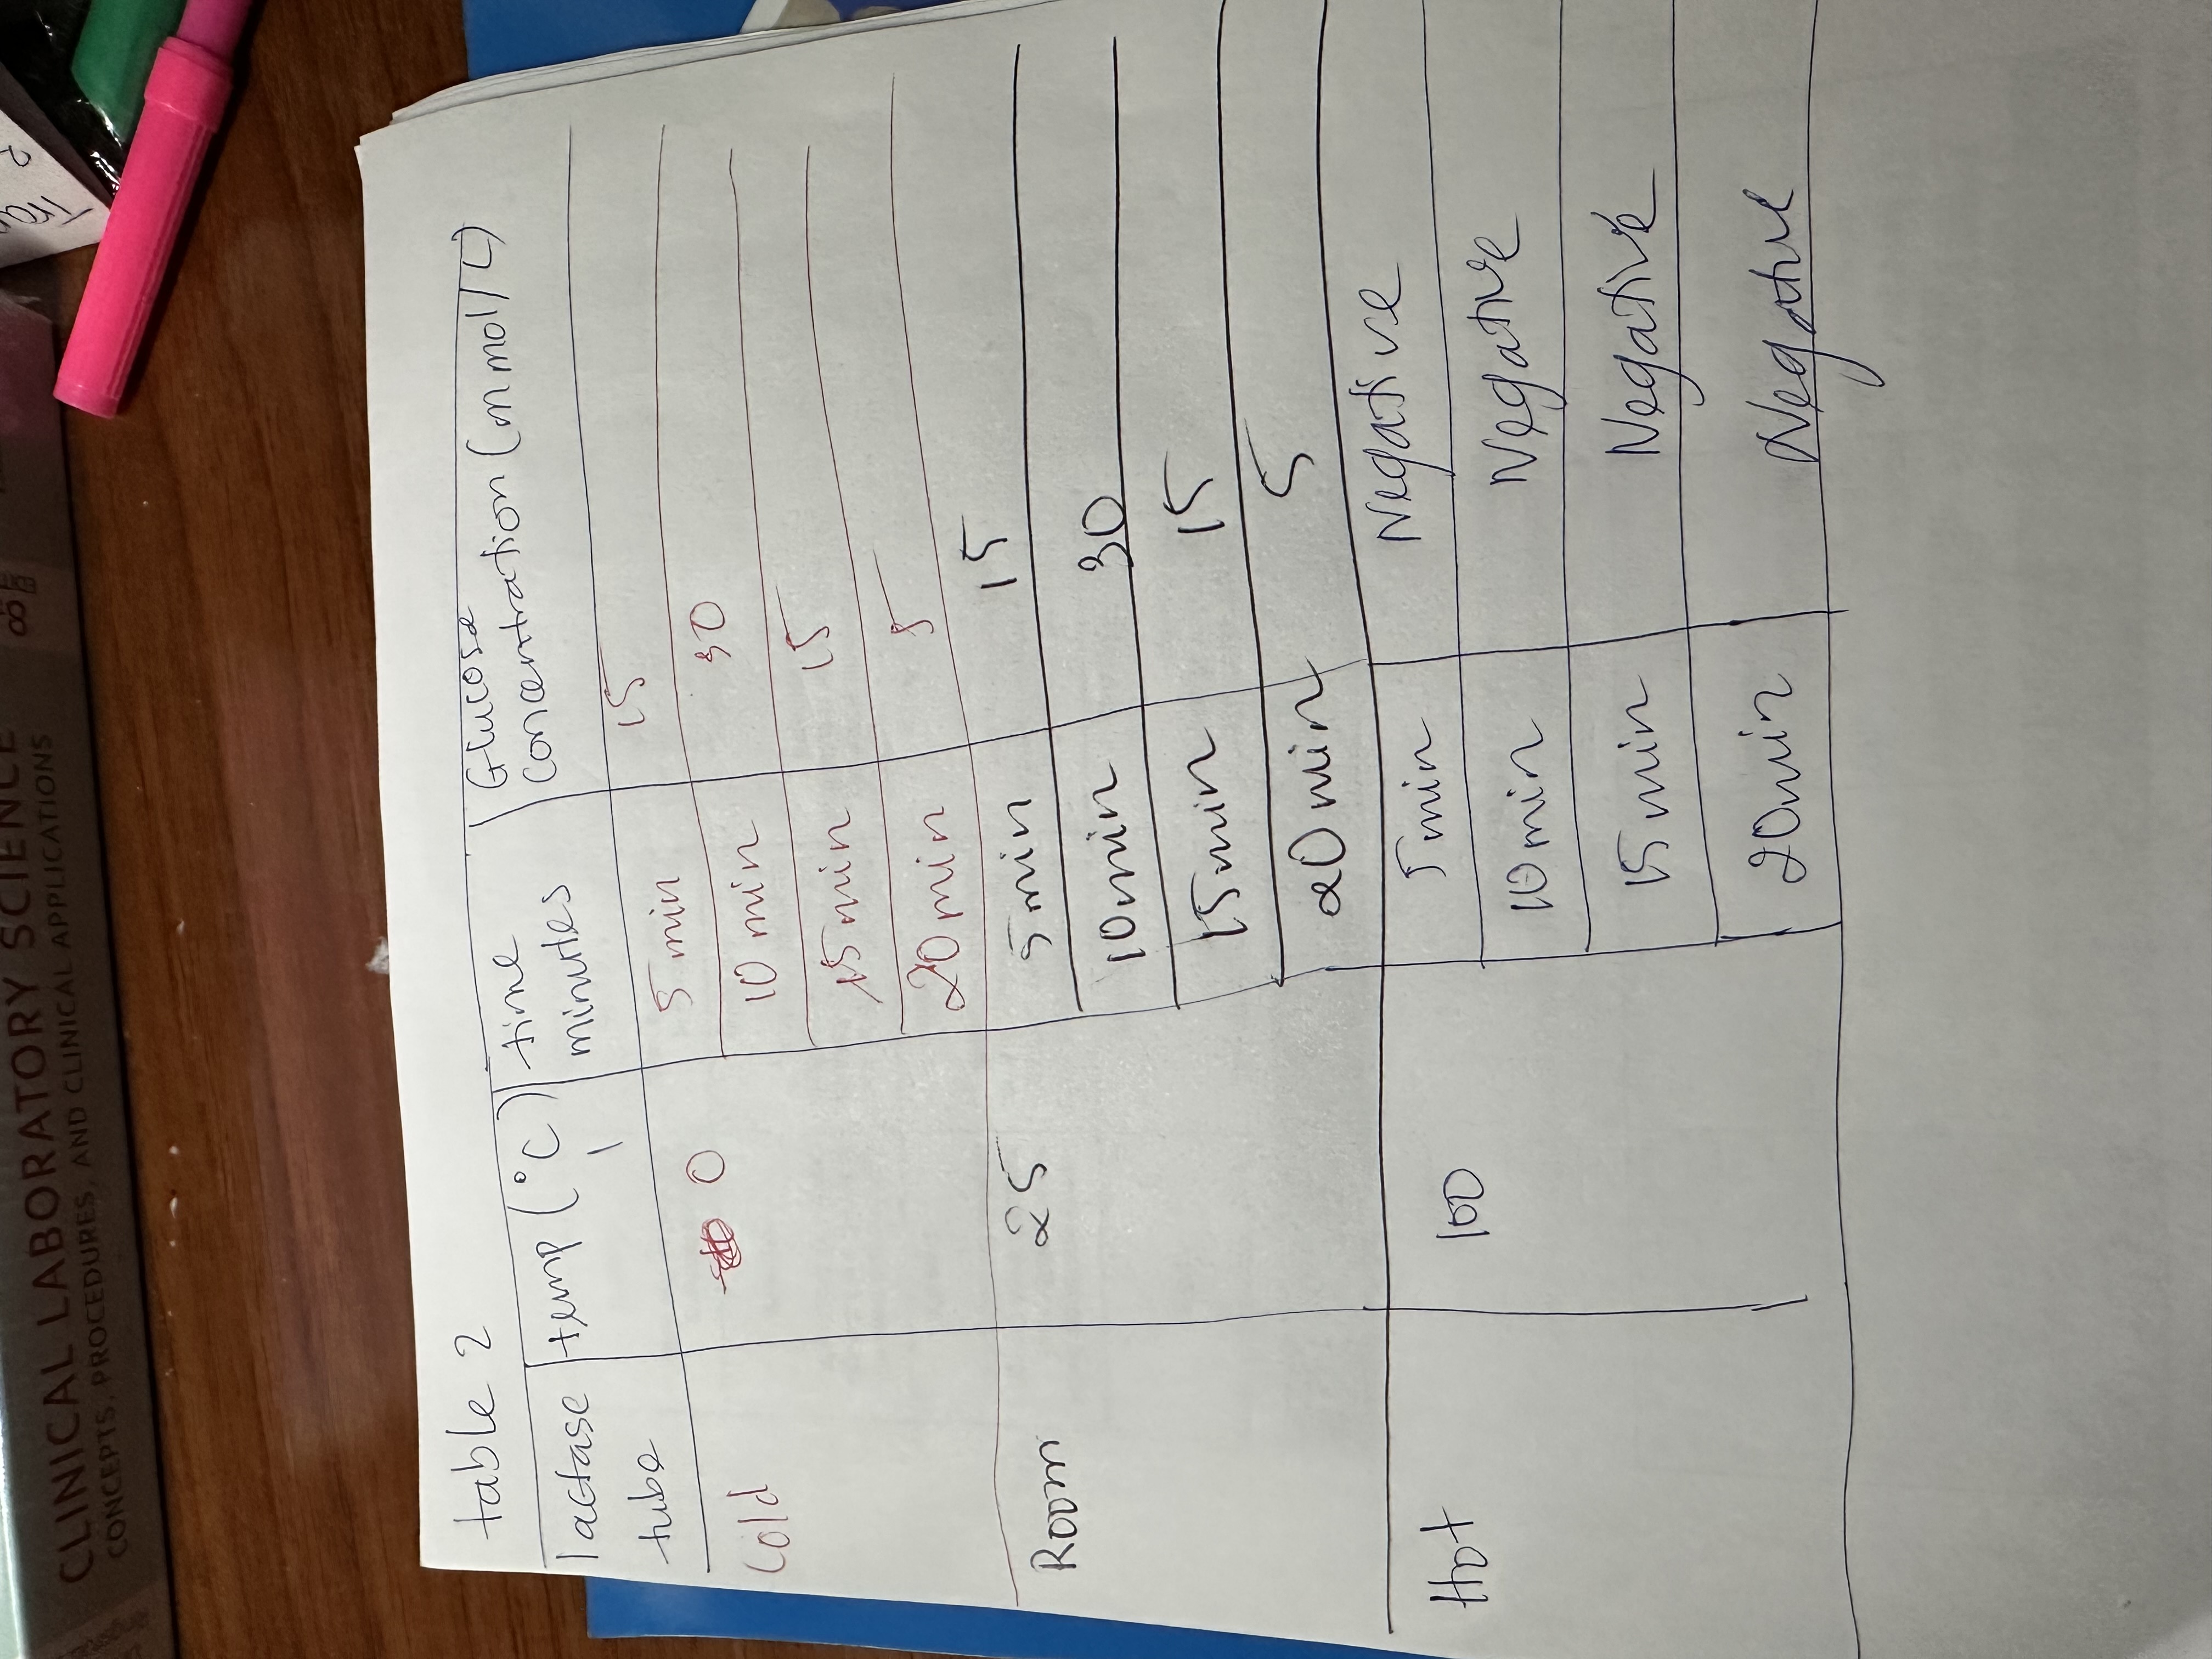 table 2
lactase tube | temp (°C) | time minutes | Glucose Concentration (mmol/L)
Cold | 0 | 5 min | 15
10 min | 30
15 min | 15
20 min | 5
Room | 25 | 5 min | 15
10 min | 30
15 min | 15
20 min | 5
Hot | 100 | 5 min | Negative
10 min | Negative
15 min | Negative
20 min | Negative
CLINICAL LABORATORY SCIENCE
CONCEPTS, PROCEDURES, AND CLINICAL APPLICATIONS
8